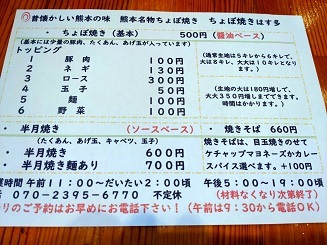 昔懐かしい熊本の味 熊本名物ちょぼ焼き ちょぼ焼きはす多
・ちょぼ焼き(基本) 500円(醬油ベース)
(基本には少量の豚肉、たくあん、あげ玉が入っています)
トッピング
1 豚肉 100円
2 ネギ 130円
3 ロース 300円
4 玉子 50円
5 麺 100円
6 野菜 100円
(通常生地は5キレから6キレで、
大は8キレ、大大は10キレとなり
ます。)
(生地の大は180円増しで、
大大350円増しまでできます。
時間はかかります。)
・半月焼き (ソースベース)
(たくあん、あげ玉、キャベツ、玉子)
・半月焼き 600円
・半月焼き麺あり 700円
・焼きそば 660円
焼きそばは、目玉焼きのせて
ケチャップマヨネーズかカレー
スパイス選べます。+100円
営業時間 午前11:00~だいたい2:00頃 午後5:00~19:00頃
070-2395-6770 不定休 (材料なくなり次第終了)
りのご予約はお早めにお電話下さい!(午前は9:30から電話OK)